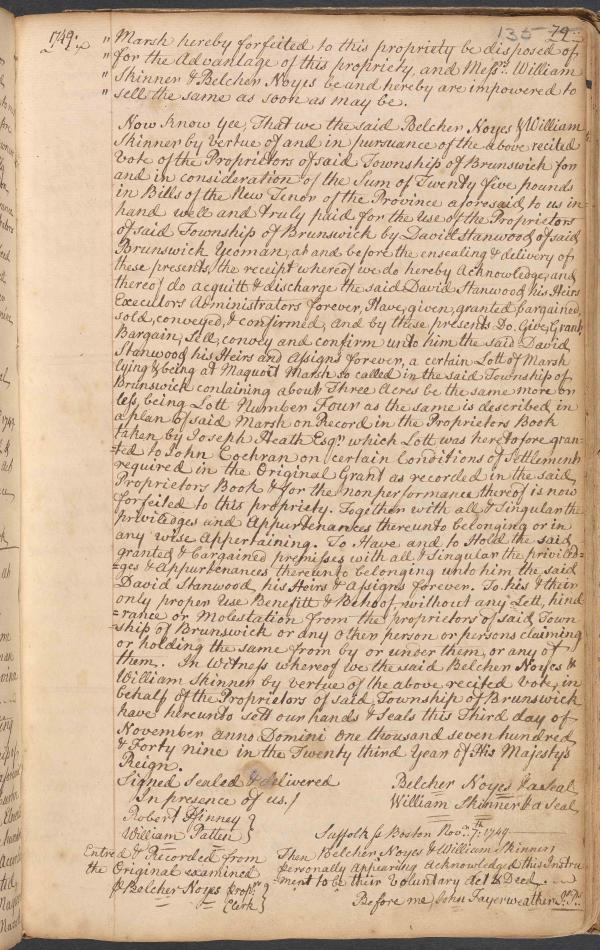 135 79
1749.
" Marsh hereby forfeited to this propriety be disposed of
" for the Advantage of this propriety, and Messrs. William
" Skinner & Belcher Noyes be and hereby are impowered to
" sell the same as soon as may be.
Now Know Yee, That we the said Belcher Noyes & William
Skinner by Vertue of and in pursuance of the above recited
Vote of the Proprietors of said Township of Brunswick for
and in consideration of the Sum of Twenty five pounds
in Bills of the New Tenor of the Province aforesaid to us in
hand well and truly paid for the Use of the Proprietors
of said Township of Brunswick by David Stanwood of said
Brunswick Yeoman, at and before the ensealing & delivery of
these presents, the receipt whereof we do hereby Acknowledge, and
thereof do acquitt & discharge the said David Stanwood, his Heirs
Executors Administrators forever, Have, given, granted bargained,
sold, conveyed, & confirmed, and by these presents Do. Give, Grant,
Bargain, Sell, convey and confirm unto him the said David
Stanwood, his Heirs and Assigns forever, a certain Lott of Marsh
lying & being at Maquoit Marsh so called in the said Township of
Brunswick containing about Three Acres be the same more or
less, being Lott Number Four as the same is described in
a plan of said Marsh on Record in the Proprietors Book
taken by Joseph Heath Esqr. which Lott was heretofore gran-
=ted to John Cochran on certain Conditions of Settlement
required in the Original Grant as recorded in the said
Proprietors Book & for the nonperformance thereof is now
forfeited to this propriety. Together with all & Singular the
priviledges and Appurtenances thereunto belonging or in
any wise Appertaining. To Have and to Hold the said
granted & bargained premisses with all & Singular the priviled=
=ges & Appurtenances thereunto belonging unto him the said
David Stanwood, his Heirs & Assigns forever. To his & their
only proper Use Benefitt & Behoof without any Lett, hind
=rance or Molestation from the proprietors of said Town
=ship of Brunswick or any other person or persons claiming
or holding the same from by or under them, or any of
them. In Witness whereof we the said Belcher Noyes &
William Skinner by vertue of the above recited Vote, in
behalf of the Proprietors of said Township of Brunswick
have hereunto sett our hands & Seals this Third day of
November Anno Domini One thousand seven hundred
& Forty nine in the Twenty third Year of His Majestys
Reign.
Signed Sealed & delivered
In presence of us.
Robert Finney
William Patten
Belcher Noyes & a Seal
William Skinner & a Seal
Entred & Recorded from
the Original examined
p Belcher Noyes propr's
Clerk
Suffolk ss Boston Novr. 7th: 1749
Then Belcher Noyes & William Skinner
personally appearing Acknowledged this Instru
=ment to be their Voluntary Act & Deed
Before me, John Fayerweather Js. Ps.